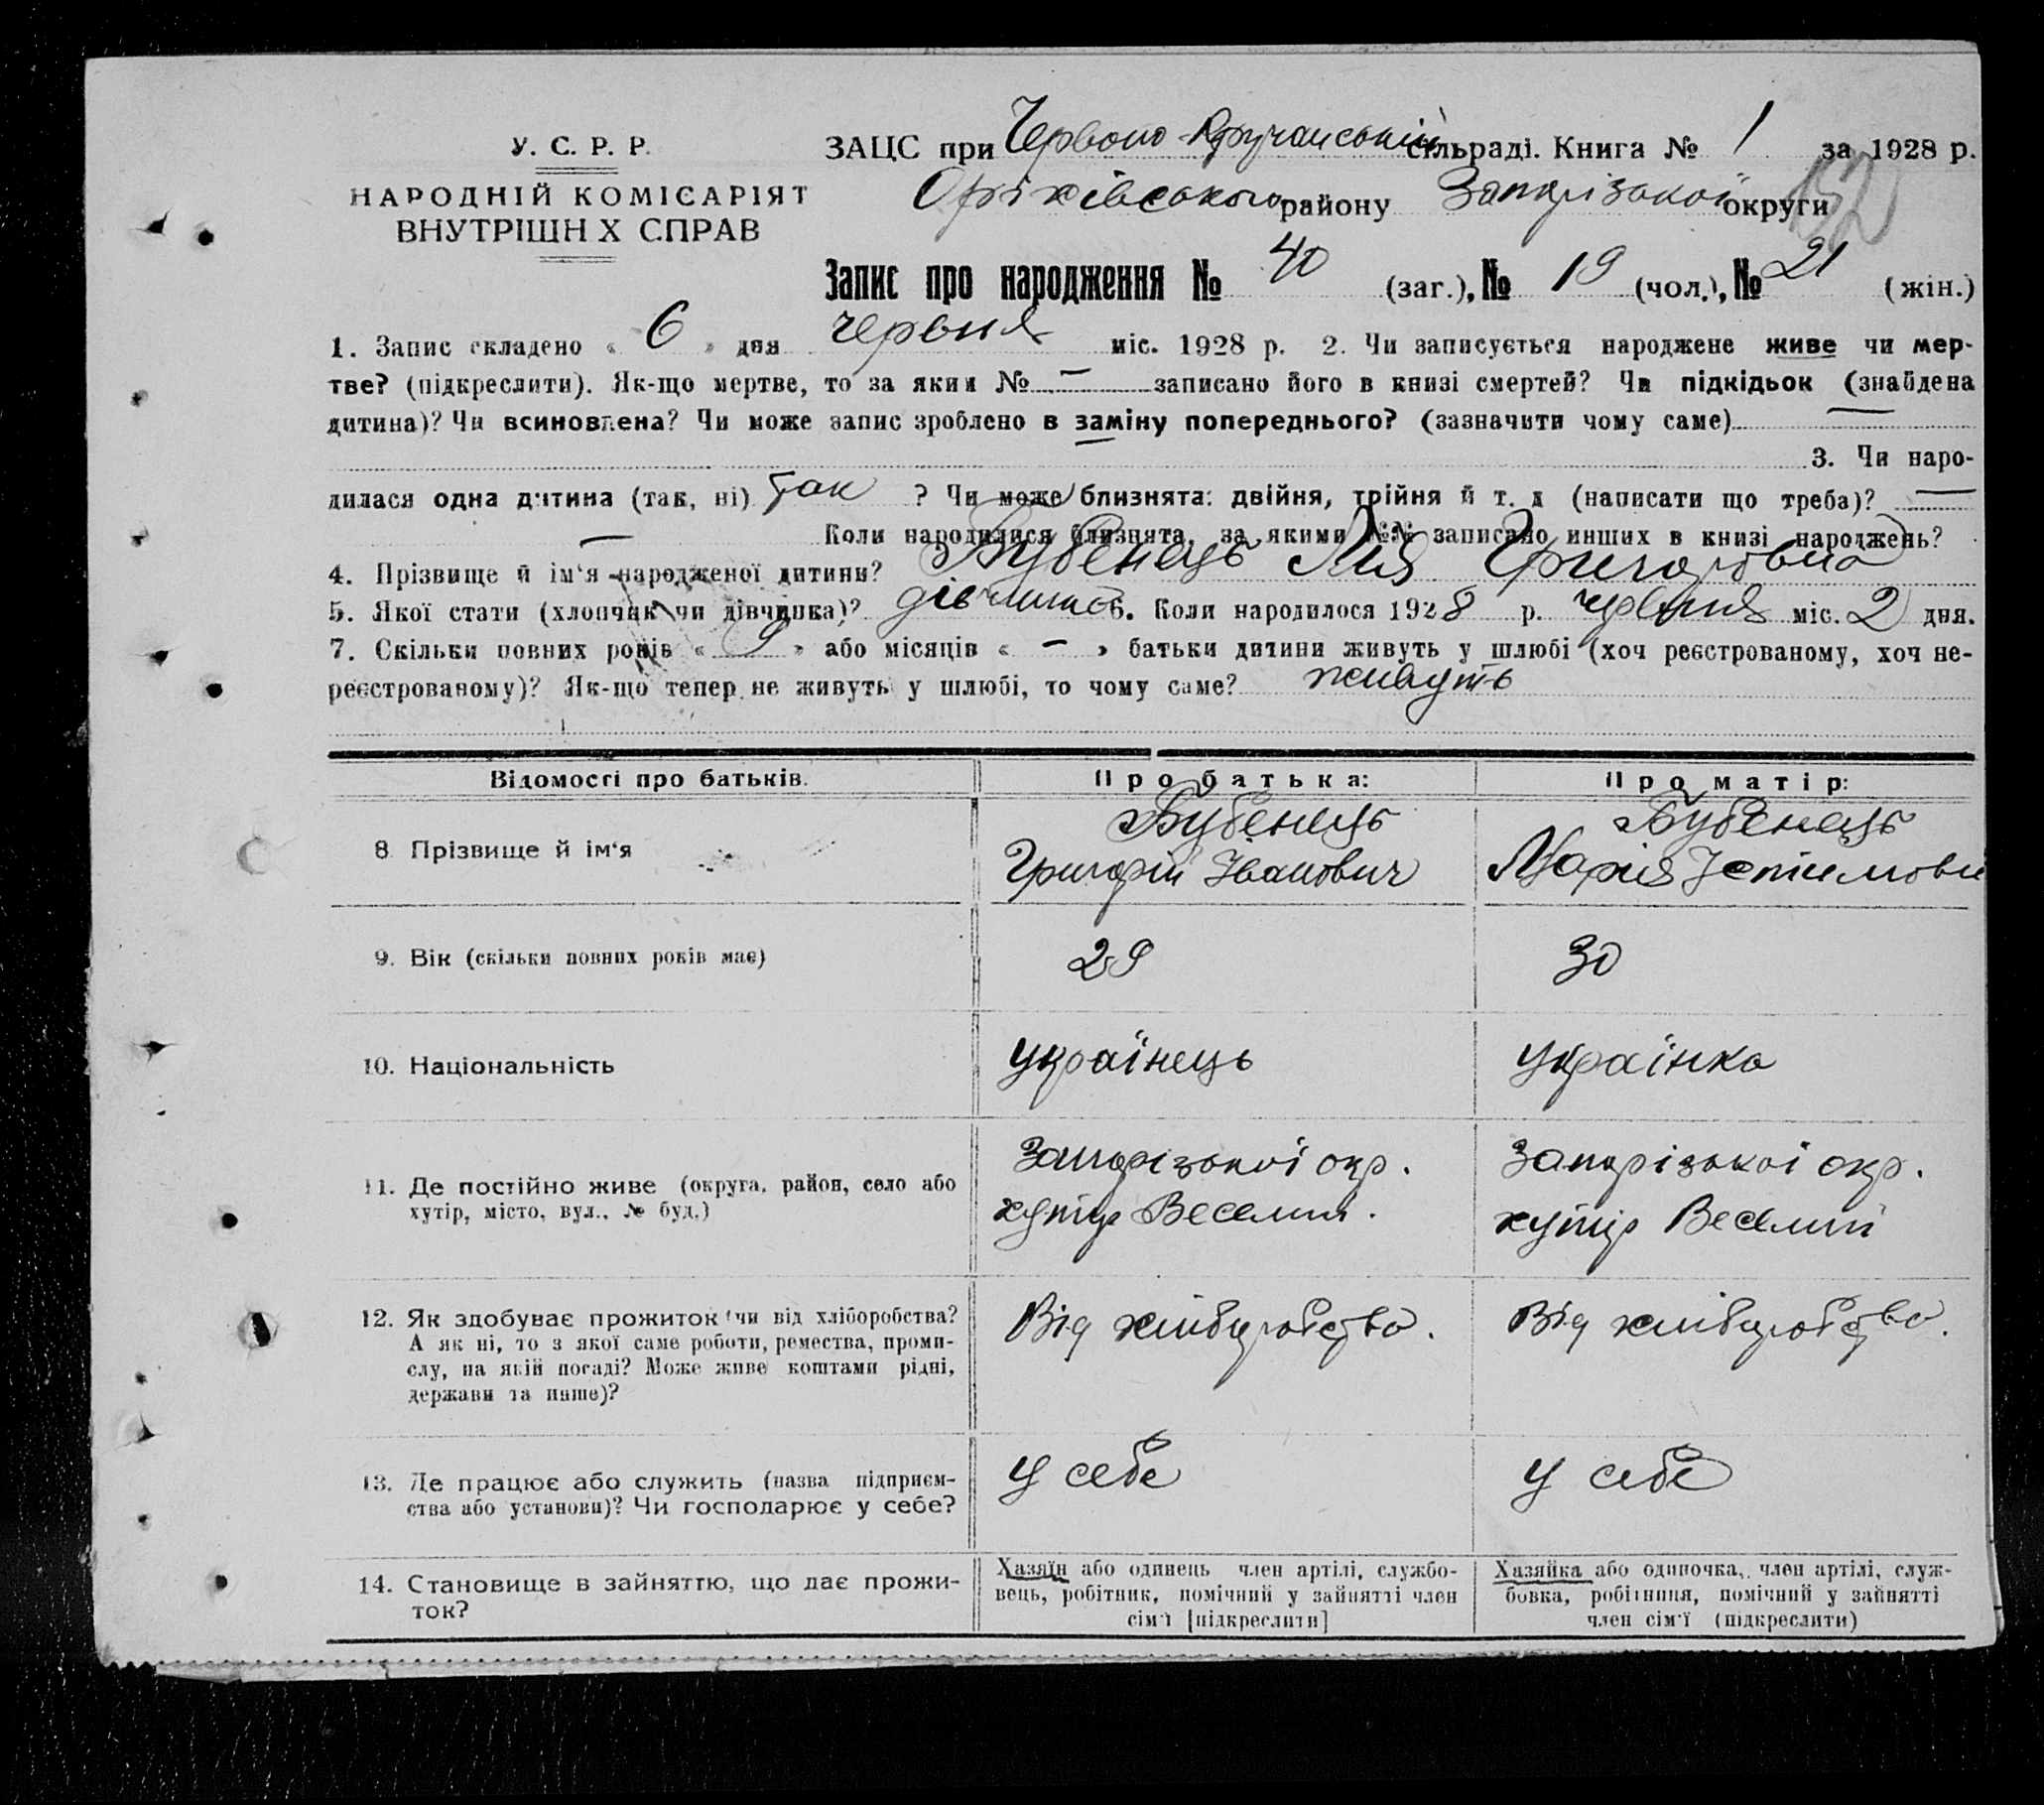 У. С. Р. Р.
НАРОДНІЙ КОМІСАРІЯТ
ВНУТРІШН Х СПРАВ
ЗАЦС при Червоно- сільраді. Книга № 1 за 1928 р.
Оріхівського району Запорізької округи
152
Запис про народження № 40 (заг.), № 19 (чол.), № 21 (жін.)
1. Запис складено « 6 » дня червня міс. 1928 р. 2. Чи записується народжене живе чи мер-
тве? (підкреслити). Як-що мертве, то за яким № — записано його в книзі смертей? Чи підкідьок (знайдена
дитина)? Чи всиновлена? Чи може запис зроблено в заміну попереднього? (зазначити чому саме) —
3. Чи наро-
дилася одна дитина (так, ні) Так ? Чи може близнята: двійня, трійня й т. д (написати що треба)? —
— Коли народилися близнята, за якими №№ записано инших в книзі народжень?
4. Прізвище й ім'я народженої дитини? Бубенець Лія Григоровна
5. Якої стати (хлопчик чи дівчинка)? дівчинка 6. Коли народилося 1928 р. червня міс. 2 дня.
7. Скільки повних років « 9 » або місяців « — » батьки дитини живуть у шлюбі (хоч реєстрованому, хоч не-
реєстрованому)? Як-що тепер не живуть у шлюбі, то чому саме? живуть
Відомості про батьків.
Про батька:
Про матір:
8 Прізвище й ім'я
Бубенець
Григорій Іванович
Бубенець
Марія Устимовн
9. Вік (скільки повних років має)
29
30
10. Національність
українець
українка
11. Де постійно живе (округа, район, село або
хутір, місто, вул., № буд.)
Запорізької окр.
хутір Веселий.
Запорізької окр.
хутір Веселий
12. Як здобуває прожиток (чи від хліборобства?
А як ні, то з якої саме роботи, ремества, проми-
слу, на якій посаді? Може живе коштами рідні,
держави та инше)?
Від хліборобства.
Від хліборобства.
13. Де працює або служить (назва підприєм-
ства або установи)? Чи господарює у себе?
У себе
У себе
14. Становище в зайняттю, що дає прожи-
ток?
Хазяїн або одинець член артілі, службо-
вець, робітник, помічний у зайнятті член
сім'ї [підкреслити]
Хазяйка або одиночка, член артілі, служ-
бовка, робітниця, помічний у зайнятті
член сім'ї (підкреслити)